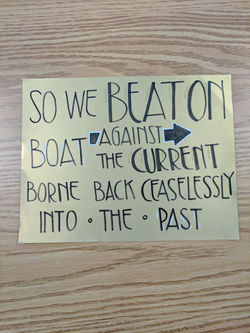 SO WE BEAT ON
BOAT AGAINST
THE CURRENT
BORNE BACK CEASELESSLY
INTO • THE • PAST